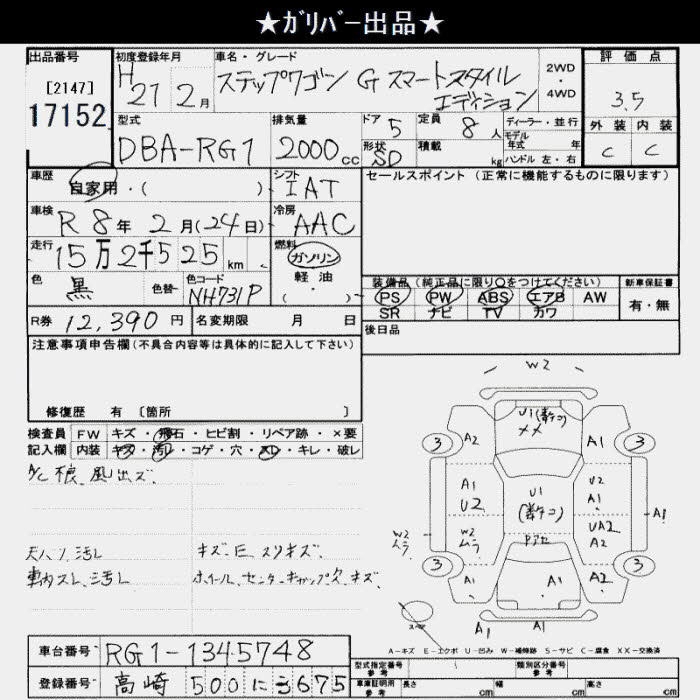 ★ガリバー出品★
出品番号 初度登録年月 車名・グレード 評価点
[2147] H21 2月 ステップワゴン G スマートスタイル エディション 2WD・4WD 3.5
17152
型式 排気量 ドア 定員 ディーラー・並行 外装 内装
DBA-RG1 2000cc 5 8人 モデル年式 年 C C
形状 5D 積載 kg ハンドル 左・右
車歴 シフト セールスポイント(正常に機能するものに限ります)
自家用・( ) IAT
車検 R8年 2月(24日) 冷房 AAC
走行 15万2千525km 燃料 ガソリン
軽・油
( )
色 黒 色替 色コード NH731P
装備品(純正品に限り○をつけてください) 新車保証書
PS PW ABS エアB AW 有・無
SR ナビ TV カワ
R券 12,390円 名変期限 月 日 後日品
注意事項申告欄(不具合内容等は具体的に記入して下さい)
修復歴 有 〔箇所 〕
検査員 FW キズ・飛石・ヒビ割・リペア跡・×要
記入欄 内装 キズ・汚レ・コゲ・穴・スレ・キレ・破レ
A/C 不良 風出ズ
天バリ汚レ キズ、E、スリキズ
車内スレ、汚レ ホイール、センターキャップ欠、キズ
W2
U1(数ケコ)
××
3 A2 A1 3
A1 U1 U2
U2 (数ケコ) A1 A1
W2 ムラ W2 ムラ Pアセ UA2
A2
3 A1 A1 A2 3
スペア A1 A1
A-キズ E-エクボ U-凹み W-補修跡 S-サビ C-腐食 XX-交換済
車台番号 RG1-1345748
登録番号 高崎 500 に 3675
型式指定番号 参考 類別区分番号 参考
車庫証明用 参考 長さ cm 幅 cm 高さ cm